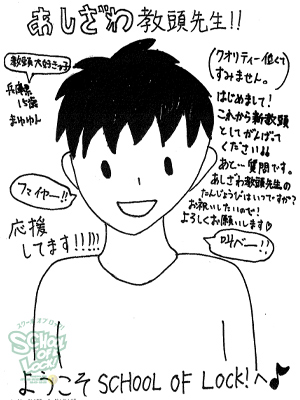 あしざわ教頭先生!!
教頭大好きっ子
兵庫県
15歳
まゆゆん
(クオリティー低くて
すみません。)
はじめまして!
これから新教頭
としてがんばって
ください!!
あと…質問です。
あしざわ教頭先生の
たんじょうびはいつですか?
お祝いしたいので!
よろしくお願いします♡
ファイヤー!!
応援
してます!!!!!
叫べー!!
スクールオブロック!
SCHOOL
OF
LOCK!
ようこそSCHOOL OF LOCK!へ♪